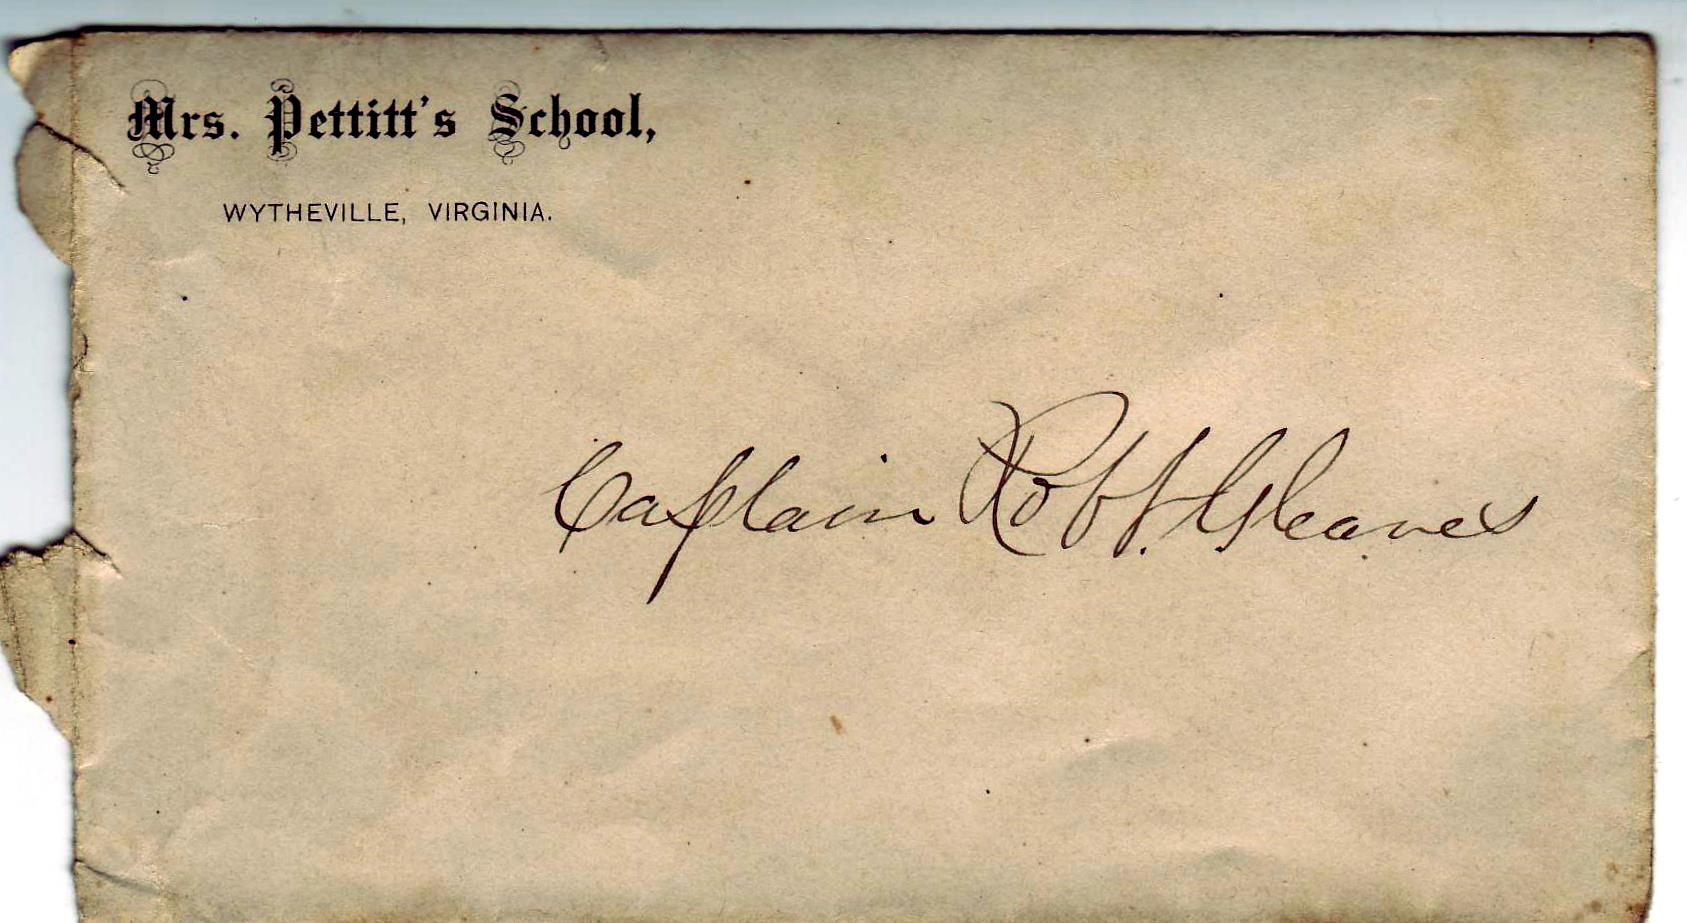 Mrs. Pettitt's School,
WYTHEVILLE, VIRGINIA.
Captain Robt. Gleaves